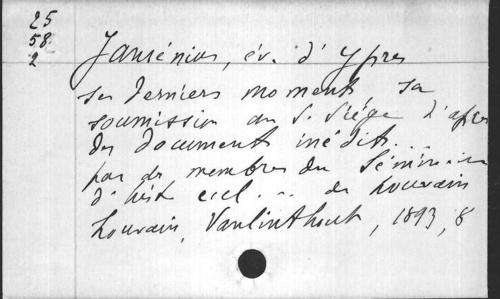 25
58
2
Jansénius, év. d'Ypres
ses derniers moments, sa
soumission au S. Siège d'après
des documents inédits...
par des membres du Séminaire
d'hist. eccl... de Louvain
Louvain, Vanlinthout, 1893, 8